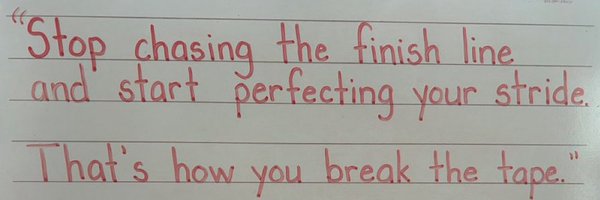 "Stop chasing the finish line
and start perfecting your stride.
That's how you break the tape."